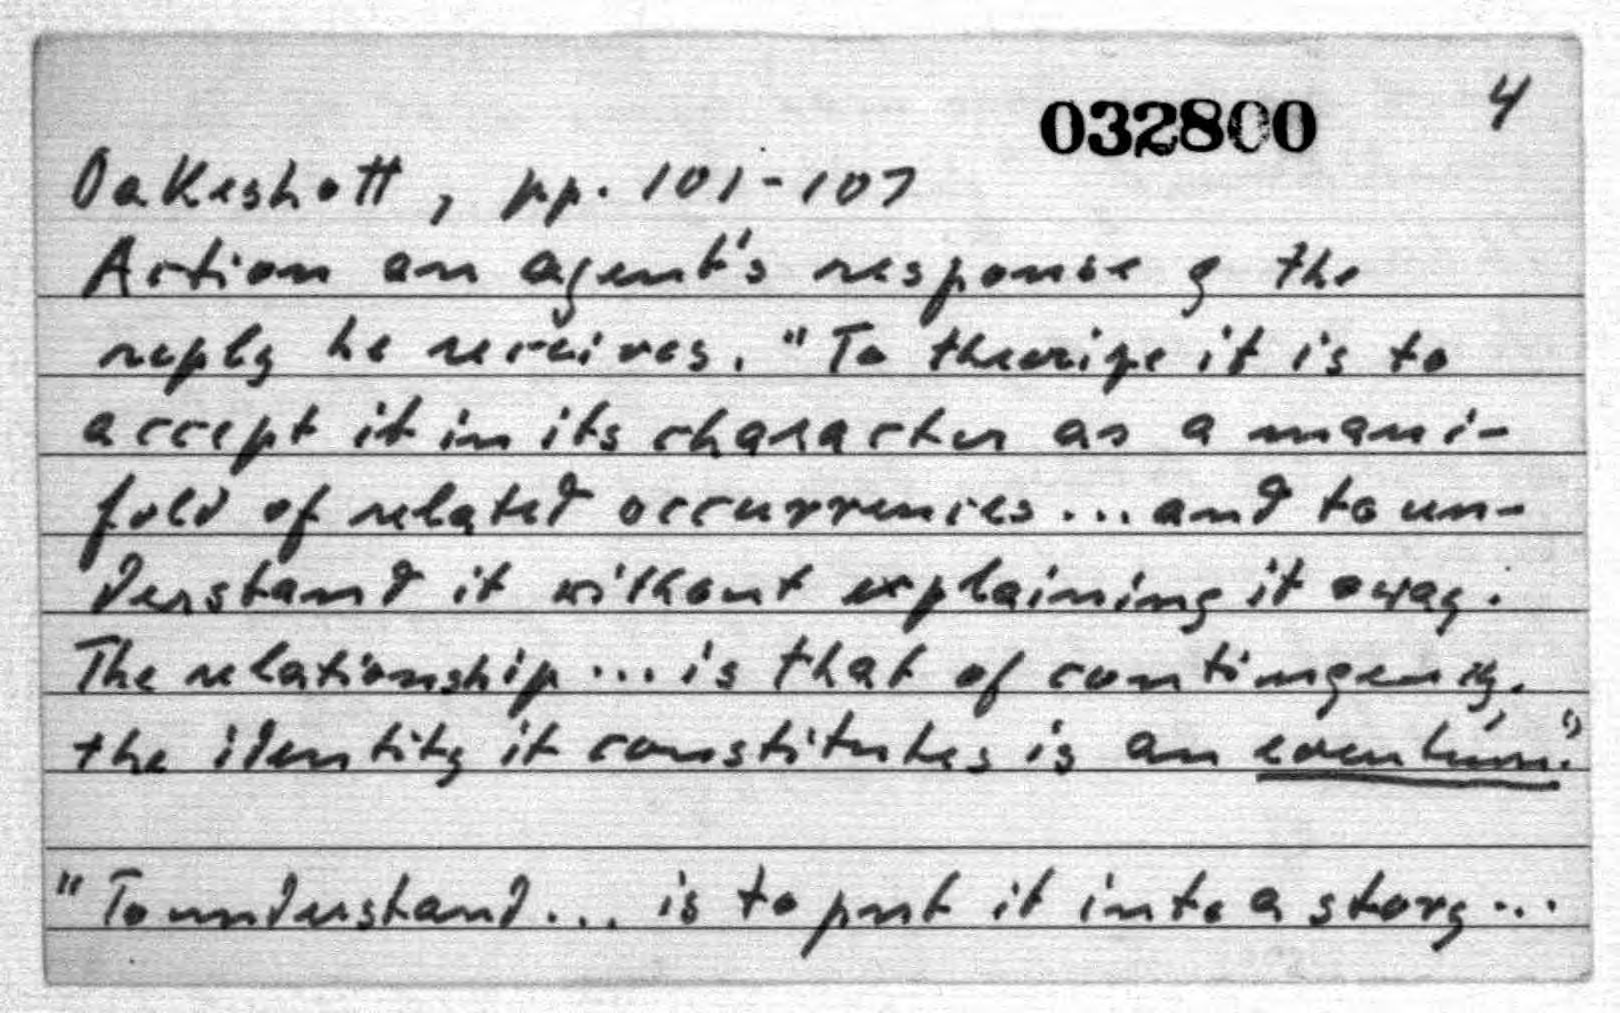 4
032800
Oakeshott, pp. 101-107
Action an agent's response & the
reply he receives. "To theorize it is to
accept it in its character as a mani-
fold of related occurrences... and to un-
derstand it without explaining it away.
The relationship... is that of contingency,
the identity it constitutes is an eventum."
"To understand... is to put it into a story...